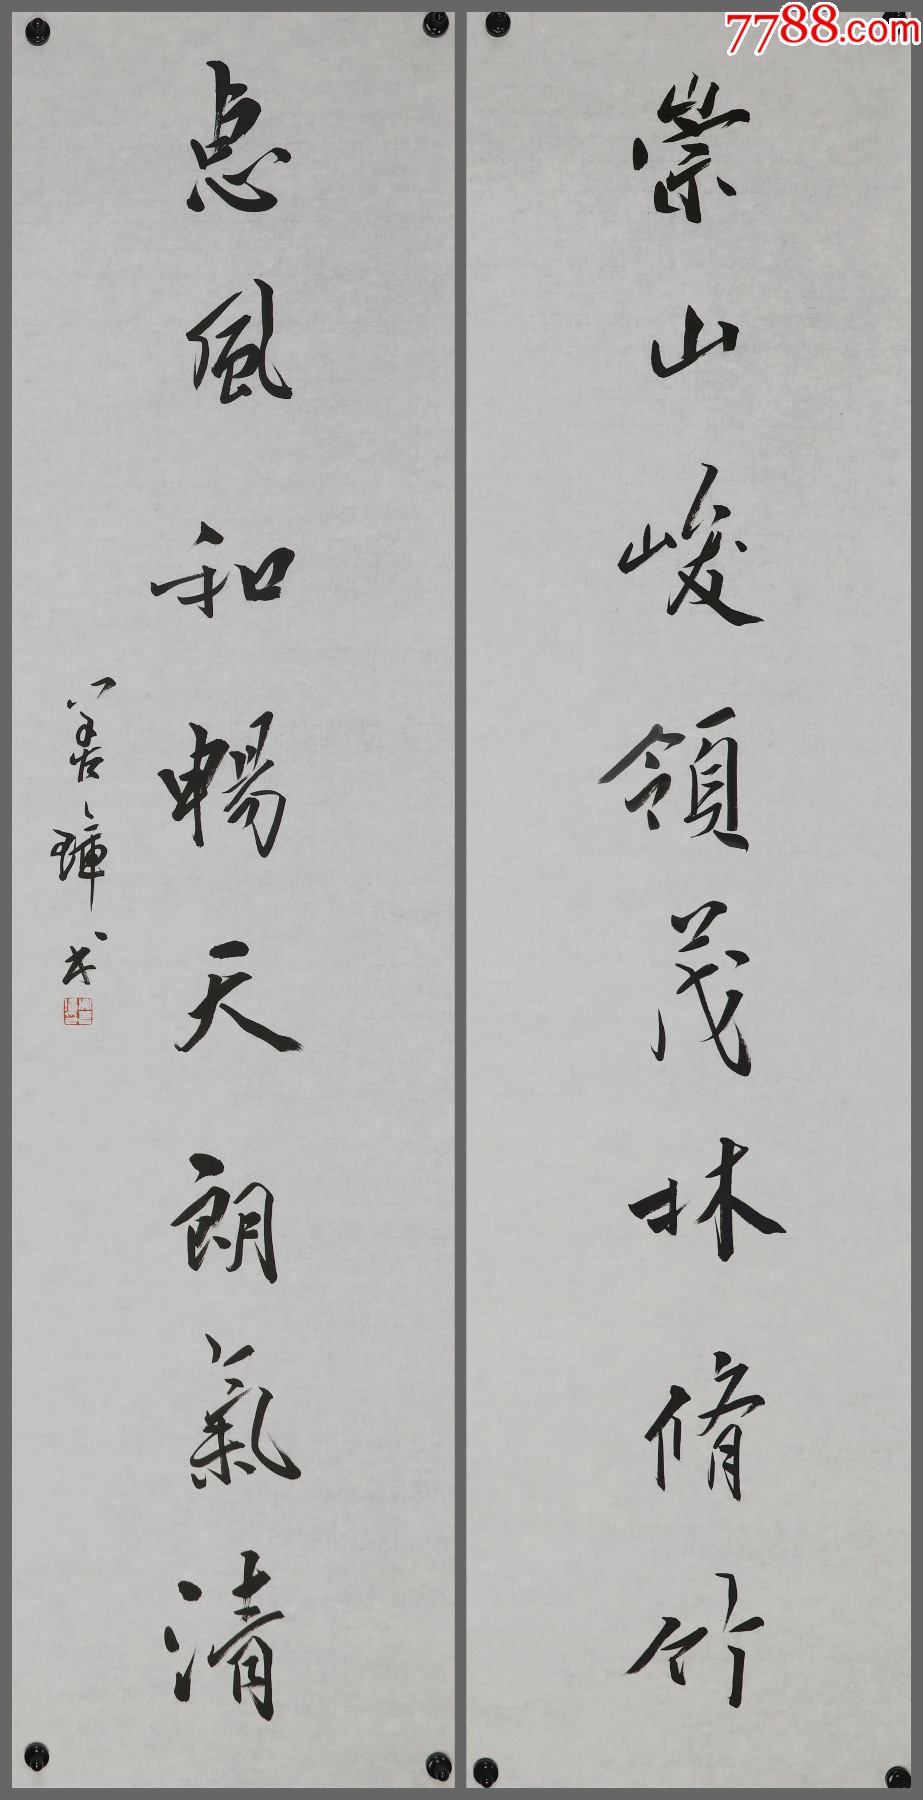 7788.com
崇山峻領茂林脩竹
惠風和暢天朗氣清
善璋书